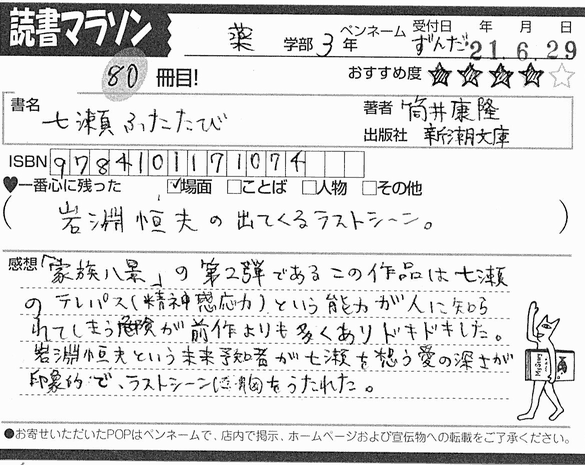 読書マラソン
薬 学部 3 年 ペンネーム ずんだ 受付日 年 月 日 21.6.29
80 冊目! おすすめ度 ★★★★☆
書名 七瀬ふたたび 著者 筒井康隆
出版社 新潮文庫
ISBN 9784101171074
♥一番心に残った ☑場面 □ことば □人物 □その他
(岩淵恒夫の出てくるラストシーン。)
感想 「家族八景」の第2弾であるこの作品は七瀬
のテレパス(精神感応力)という能力が人に知ら
れてしまう危険が前作よりも多くありドキドキした。
岩淵恒夫という未来予知者が七瀬を想う愛の深さが
印象的で、ラストシーンは胸をうたれた。
●お寄せいただいたPOPはペンネームで、店内で掲示、ホームページおよび宣伝物への転載をご了承ください。